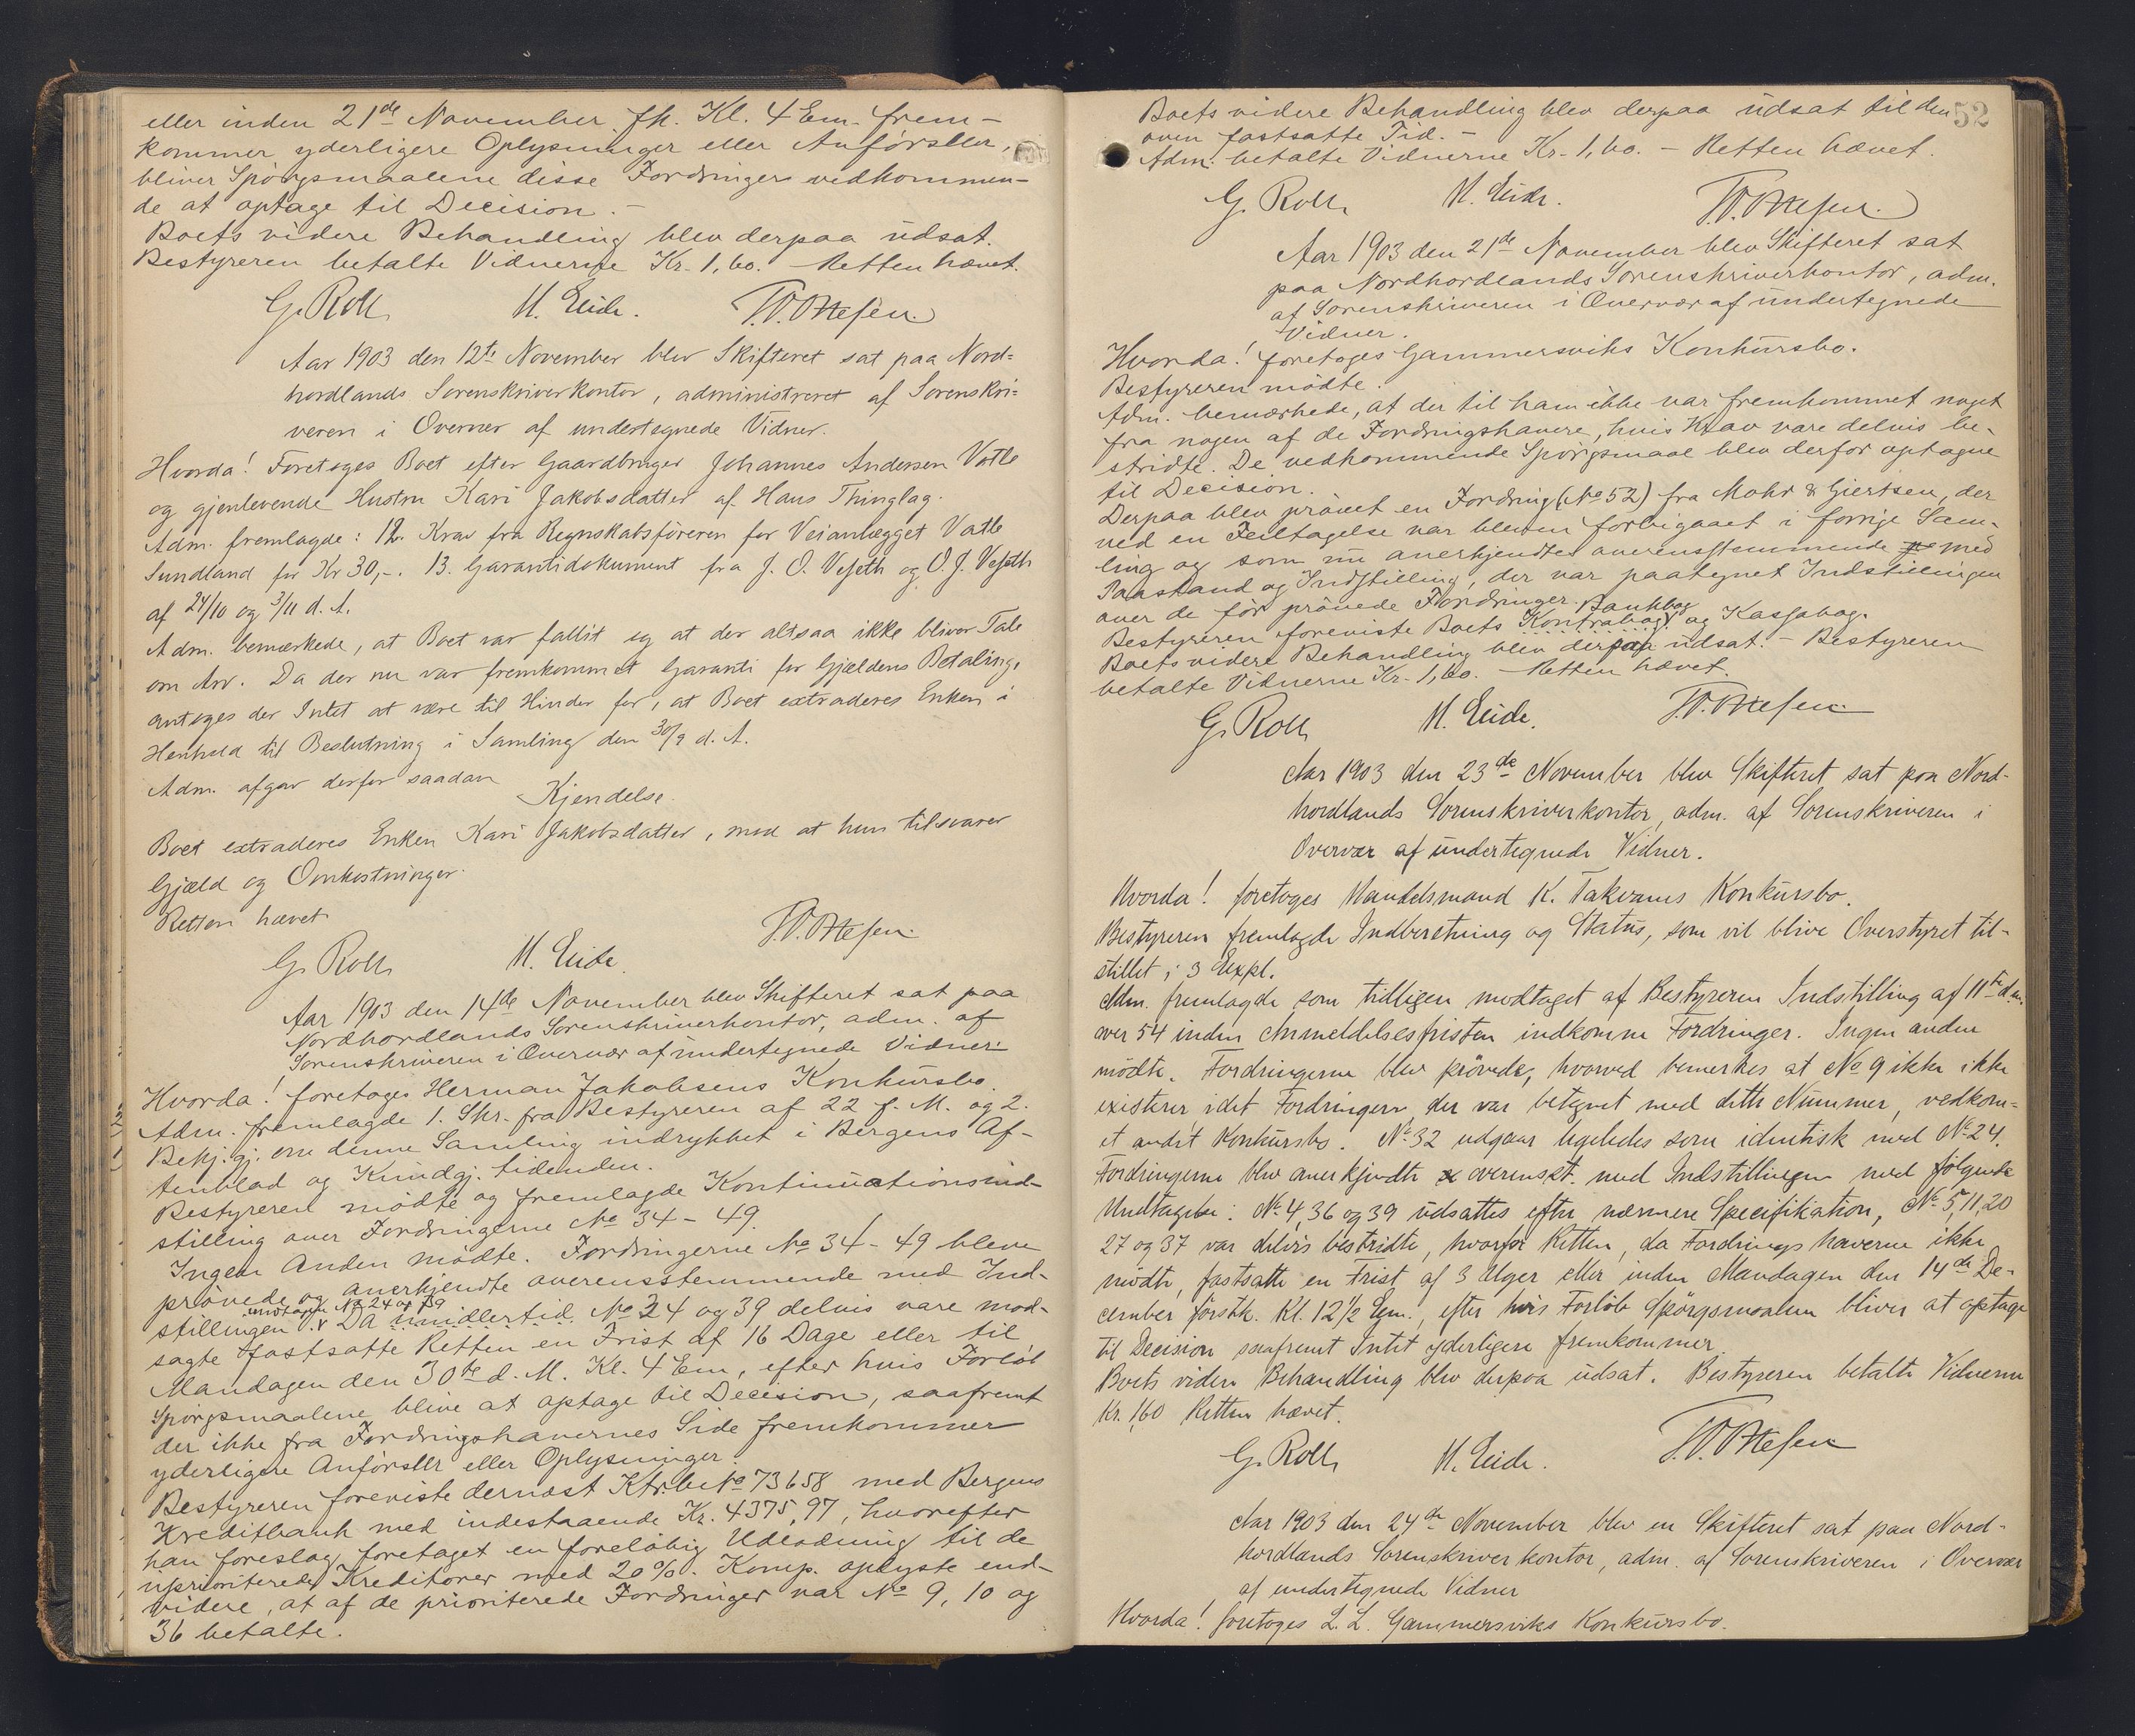 eller inden 21de November fk. Kl. 4 Em. frem-
kommer yderligere Oplysninger eller Anførsler,
bliver Spörgsmaalene disse Fordringer vedkommen-
de at optage til Decision. -
Boets videre Behandling blev derpaa udsat.
Bestyreren betalte Vidnerne Kr. 1,60. Retten hævet.
G. Roll M. Eide.
Aar 1903 den 12te November blev Skifteret sat paa Nord=
hordlands Sorenskriverkontor, administreret af Sorenskri=
veren i Overvær af undertegnede Vidner.
Hvorda! Foretoges Boet efter Gaardbruger Johannes Andersen Vatle
og gjenlevende Hustru Kari Jakobsdatter af Haus Thinglag.
Adm. fremlagde: 12. Krav fra Regnskabsföreren for Veianlægget Vatle
Sundland for Kr 30,-. 13. Garantidokument fra J. O. Veseth og O. J. Veseth
af 24/10 og 3/11 d. A.
Adm. bemærkede, at Boet var fallit og at der altsaa ikke bliver Tale
om Arv. Da der nu var fremkommet Garanti for Gjældens Betaling,
antoges der Intet at være til Hinder for, at Boet extraderes Enken i
Henhold til Beslutning i Samling den 30/9 d. A.
Adm. afgav derfor saadan
Kjendelse.
Boet extraderes Enken Kari Jakobsdatter, mod at hun tilsvarer
Gjæld og Omkostninger.
Retten hævet
G. Roll M. Eide.
Aar 1903 den 14de November blev Skifteret sat paa
Nordhordlands Sorenskriverkontor, adm. af
Sorenskriveren i Overvær af undertegnede Vidner.
Hvorda! foretoges Herman Jakobsens Konkursbo.
Adm. fremlagde 1. Skr. fra Bestyreren af 22 f. M. og 2.
Bekj.gj. om denne Samling indrykket i Bergens Af-
tenblad og Kundgj. tidenden.
Bestyreren mödte og fremlagde Kontinuationsind-
stilling over Fordringerne No 34 - 49.
Ingen Anden mödte. Fordringerne No 34 - 49 bleve
prövede og anerkjendte overensstemmende med Ind-
undtagen No 24 og 39
stillingen. Da imidlertid No 34 og 39 delvis vare mod-
sagte fastsatte Retten en Frist af 16 Dage eller til
Mandagen den 30te d. M. Kl. 4 Em, efter hvis Forlöb
Spörgsmaalene blive at optage til Decision, saafremt
der ikke fra Fordringshavernes Side fremkommer
yderligere Anförsler eller Oplysninger.
Bestyreren foreviste dernæst Ktr.bk No 73658 med Bergens
Kreditbank med indestaaende Kr. 4375,97, hvorefter
han foreslog foretaget en forelöbig Udlodning til de
uprioriterede Kreditorer med 20%. Komp. oplyste end-
videre, at af de prioriterede Fordringer var No 9, 10 og
36 betalte.
52
Boets videre Behandling blev derpaa udsat til den
oven fastsatte Tid. -
Adm. betalte Vidnerne Kr. 1,60. - Retten hævet.
G. Roll M. Eide.
Aar 1903 den 21de November blev Skifteret sat
paa Nordhordlands Sorenskriverkontor, adm.
af Sorenskriveren i Overvær af undertegnede
Vidner.
Hvorda! foretoges Gammersviks Konkursbo.
Bestyreren mödte.
Adm. bemærkede, at der til ham ikke var fremkommet noget
fra nogen af de Fordringshavere, hvis Krav vare delvis be-
stridte. De vedkommende Spörgsmaal blev derfor optagne
til Decision.
Derpaa blev prövet en Fordring (No 52) fra Mohr & Giertsen, der
ved en Feiltagelse var bleven forbigaaet i forrige Sam-
ling og som nu anerkjendtes overensstemmende med
Paastand og Indstilling, der var paategnet Indstillingen
over de för prövede Fordringer. Bankbog
Bestyreren foreviste Boets Kontrabog og Kassabog.
Boets videre Behandling blev derpaa udsat. - Bestyreren
betalte Vidnerne Kr. 1,60. Retten hævet.
G. Roll M. Eide.
Aar 1903 den 23de November blev Skifteret sat paa Nord-
hordlands Sorenskriverkontor, adm. af Sorenskriveren i
Overvær af undertegnede Vidner.
Hvorda! foretoges Handelsmand K. Takvams Konkursbo.
Bestyreren fremlagde Indberetning og Status, som vil blive Overstyret til-
stillet i 3 Expl.
Adm. fremlagde som tidligere modtaget af Bestyreren Indstilling af 11te d.m.
over 54 inden Anmeldelsesfristen indkomne Fordringer. Ingen anden
mödte. Fordringerne blev prövede, hvorved bemerkes at No 9 ikke ikke
existerer idet Fordringen, der var betegnet med dette Nummer, vedkom=
et andet Konkursbo. No 32 udgaar ligeledes som identisk med No 24.
Fordringerne blev anerkjendte overenst. med Indstillingen med følgende
Undtagelse: No 4, 36 og 39 udsattes efter nærmere Specifikation, No 5, 11, 20
27 og 37 var delvis bestridte, hvorfor Retten, da Fordringshaverne ikke
mödte, fastsatte en Frist af 3 Uger eller inden Mandagen den 14de De-
cember förstk. Kl. 12½ Em., efter hvis Forlöb Spörgsmaalene bliver at optage
til Decision saafremt Intet yderligere fremkommer.
Boets videre Behandling blev derpaa udsat. Bestyreren betalte Vidnerne
Kr. 1,60 Retten hævet.
G. Roll M. Eide.
Aar 1903 den 24de November blev en Skifteret sat paa Nord-
hordlands Sorenskriverkontor, adm. af Sorenskriveren i Overvær
af undertegnede Vidner
Hvorda! foretoges L. L. Gammersviks Konkursbo.